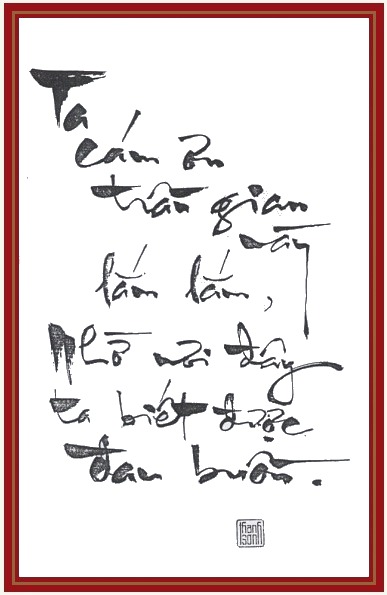 Ta
cám ơn
trần gian
này
lắm lắm,
Nhờ nơi đây
ta biết được
đau buồn.
thanh
sơn